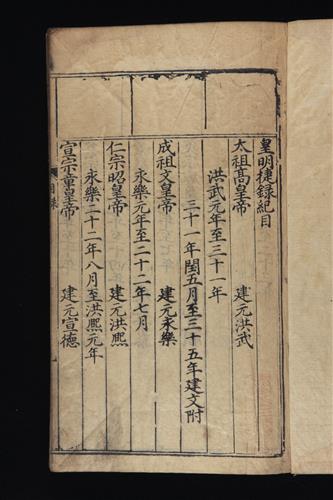 皇明捷錄紀目
太祖高皇帝 建元洪武
洪武元年至三十一年
三十一年閏五月至三十五年建文附
成祖文皇帝 建元永樂
永樂元年至二十二年七月
仁宗昭皇帝 建元洪熙
永樂二十二年八月至洪熙元年
宣宗章皇帝 建元宣德
目錄